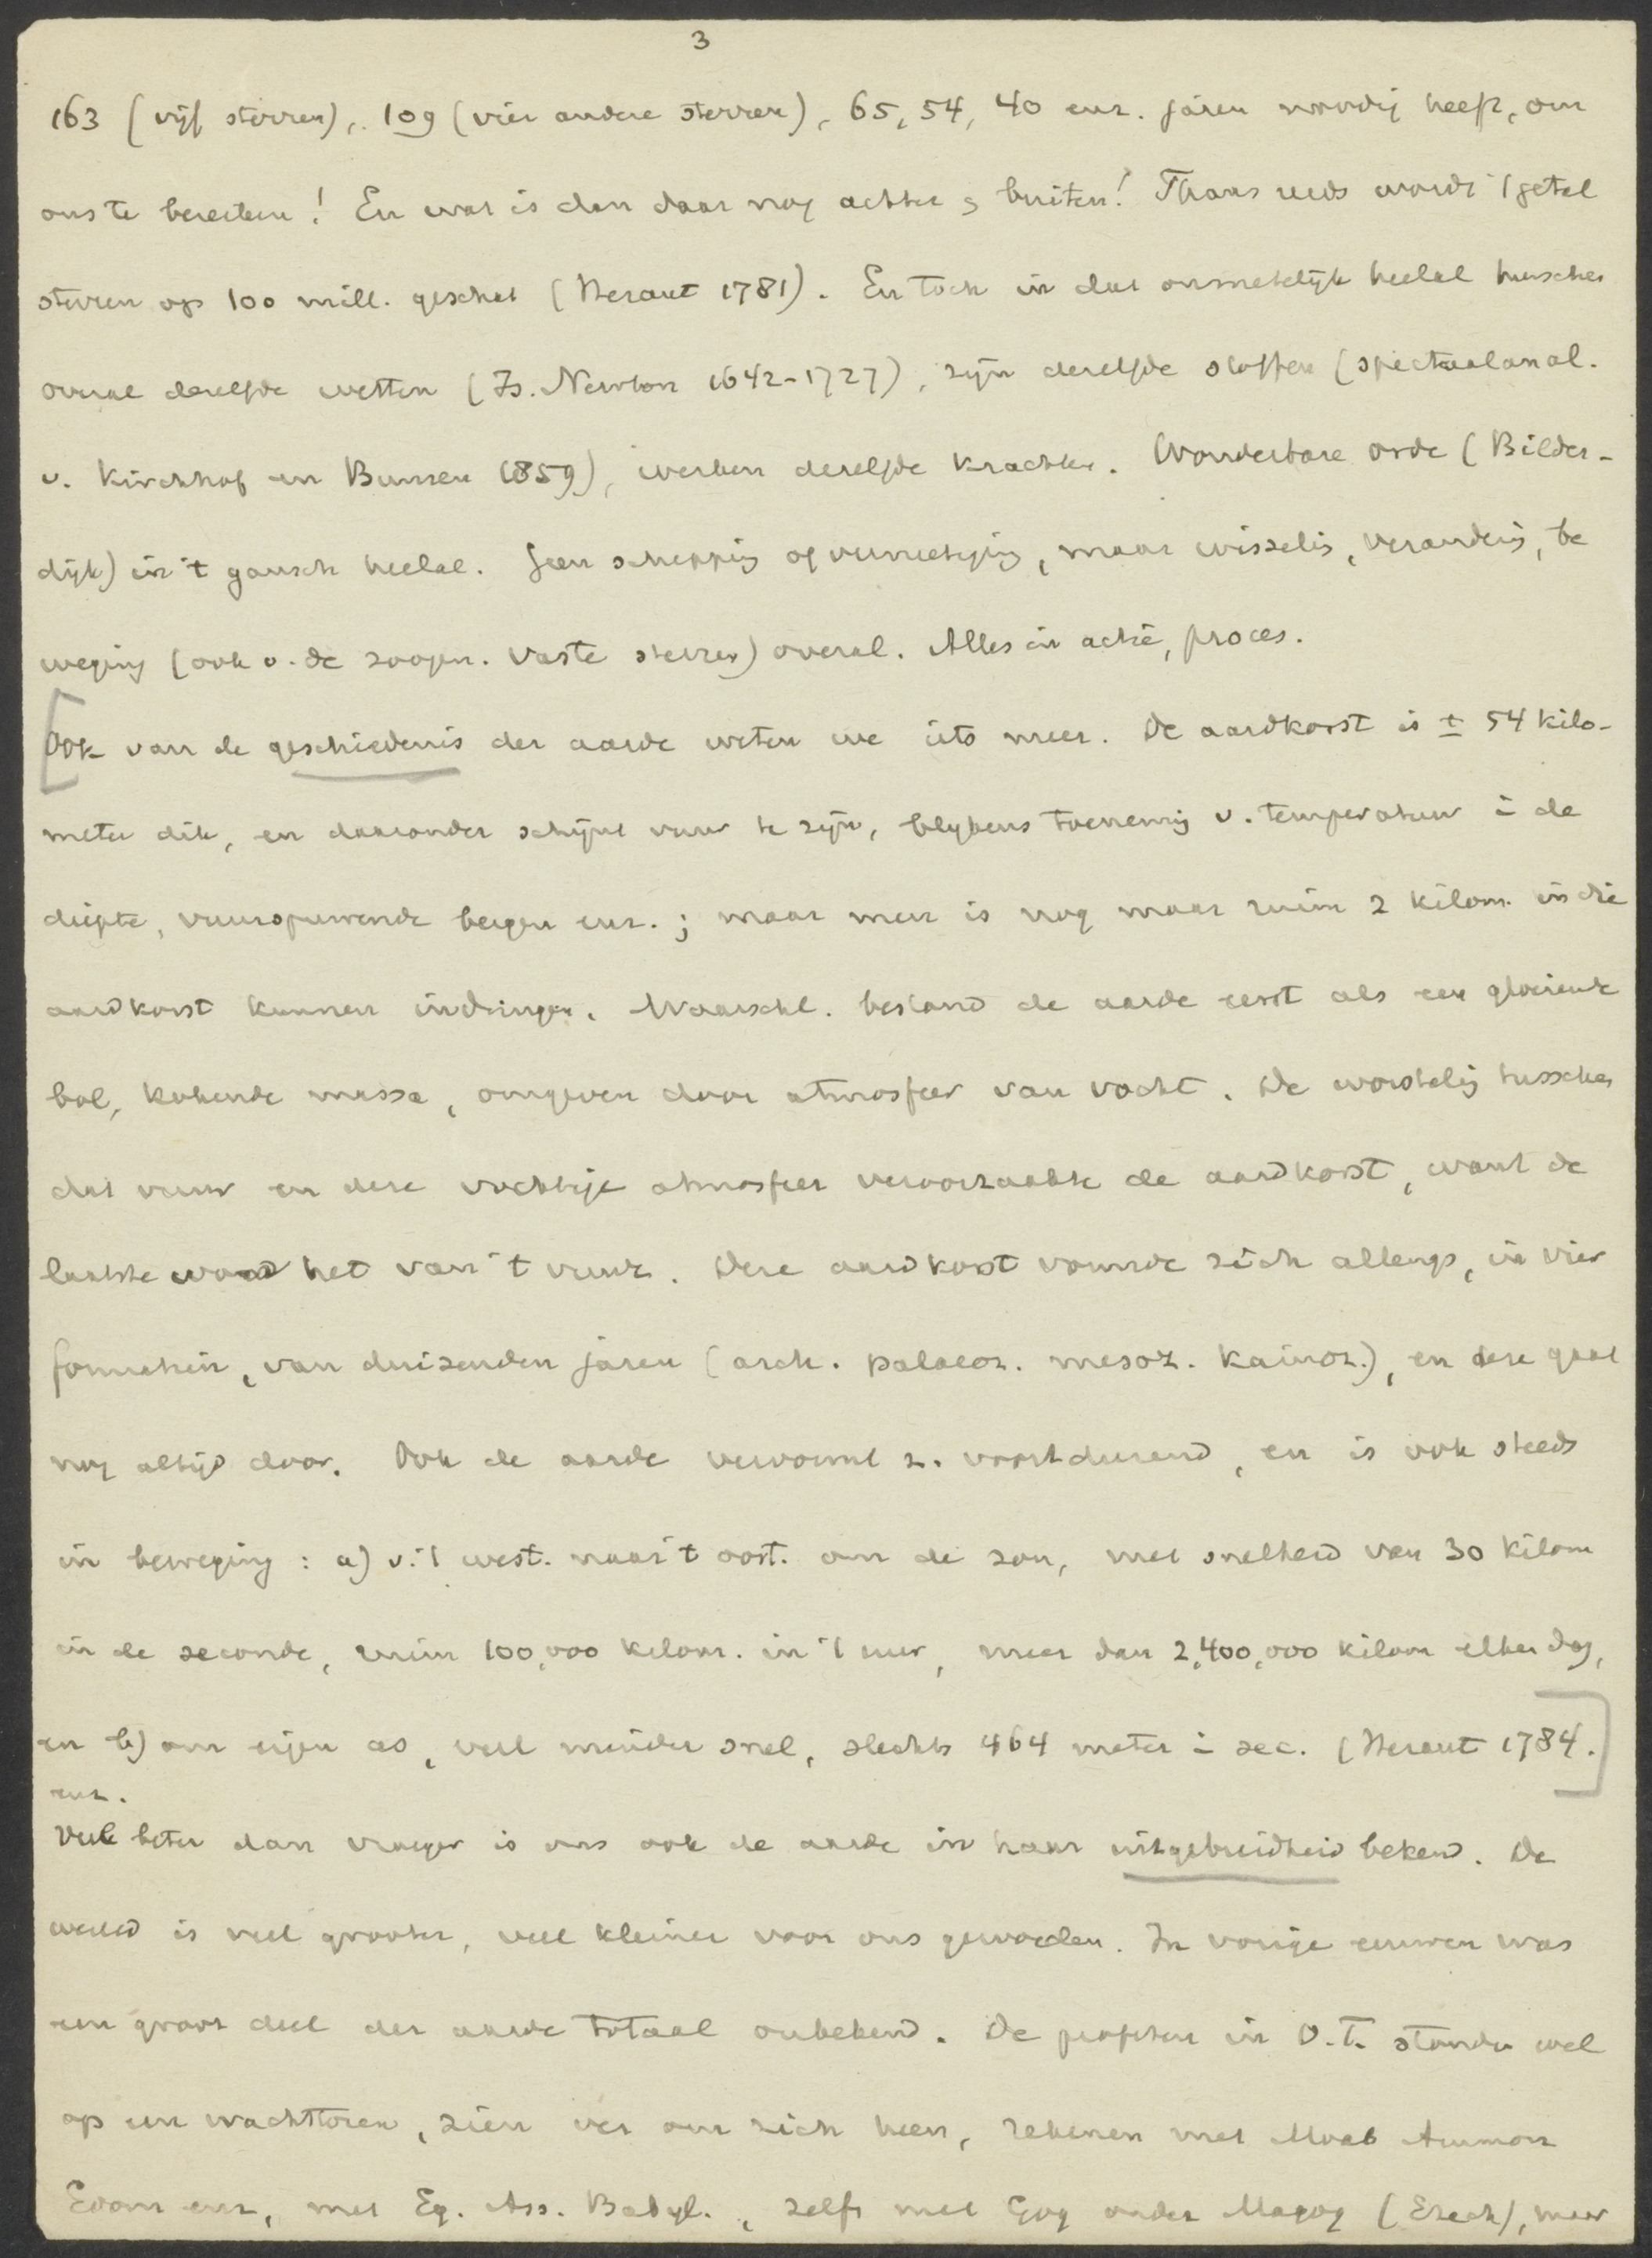 3
163 (vijf sterren), 109 (vier andere sterren), 65, 54, 40 enz. jaren noodig heeft, om
ons te bereiken! En wat is dan daar nog achter & buiten! Thans reeds wordt 't getal
sterren op 100 mill. geschat (Heraut 1781). En toch in dat onmetelijk heelal heerschen
overal dezelfde wetten (Is. Newton 1642-1727), zijn dezelfde stoffen (spectraalanal.
v. Kirchhof en Bunsen 1859), werken dezelfde krachten. Wonderbare orde (Bilder-
dijk) in 't gansch heelal. Geen schepping of vernietiging, maar wisseling, verandering, be
weging (ook v. de zoogen. vaste sterren) overal. Alles in actie, proces.
Ook van de geschiedenis der aarde weten we iets meer. De aardkorst is ± 54 kilo-
meter dik, en daaronder schijnt vuur te zijn, blijkens toeneming v. temperatuur i de
diepte, vuurspuwende bergen enz.; maar men is nog maar ruim 2 kilom. in die
aardkorst kunnen indringen. Waarschl. bestond de aarde eerst als een gloeiende
bol, kokende massa, omgeven door atmosfeer van vocht. De worsteling tusschen
dat vuur en deze vochtige atmosfeer veroorzaakte de aardkorst, want de
laatste won het van 't vuur. Deze aardkorst vormde zich allengs, in vier
formatiën, van duizenden jaren (arch. palaeoz. mesoz. kainoz.), en deze gaat
nog altijd door. Ook de aarde vervormt z. voortdurend, en is ook steeds
in beweging: a) v. 't west. naar 't oost. om de zon, met snelheid van 30 kilom
in de seconde, ruim 100,000 kilom. in 't uur, meer dan 2,400,000 kilom elken dag,
en b) om eigen as, veel minder snel, slechts 464 meter i sec. (Heraut 1784.
enz.
Veel beter dan vroeger is ons ook de aarde in haar uitgebreidheid bekend. De
wereld is veel grooter, veel kleiner voor ons geworden. In vorige eeuwen was
een groot deel der aarde totaal onbekend. De profeten in O.T. stonden wel
op een wachttoren, zien ver om zich heen, rekenen met Moab Ammon
Edom enz, met Eg. Ass. Babyl., zelfs met Gog onder Magog (Ezech), maar